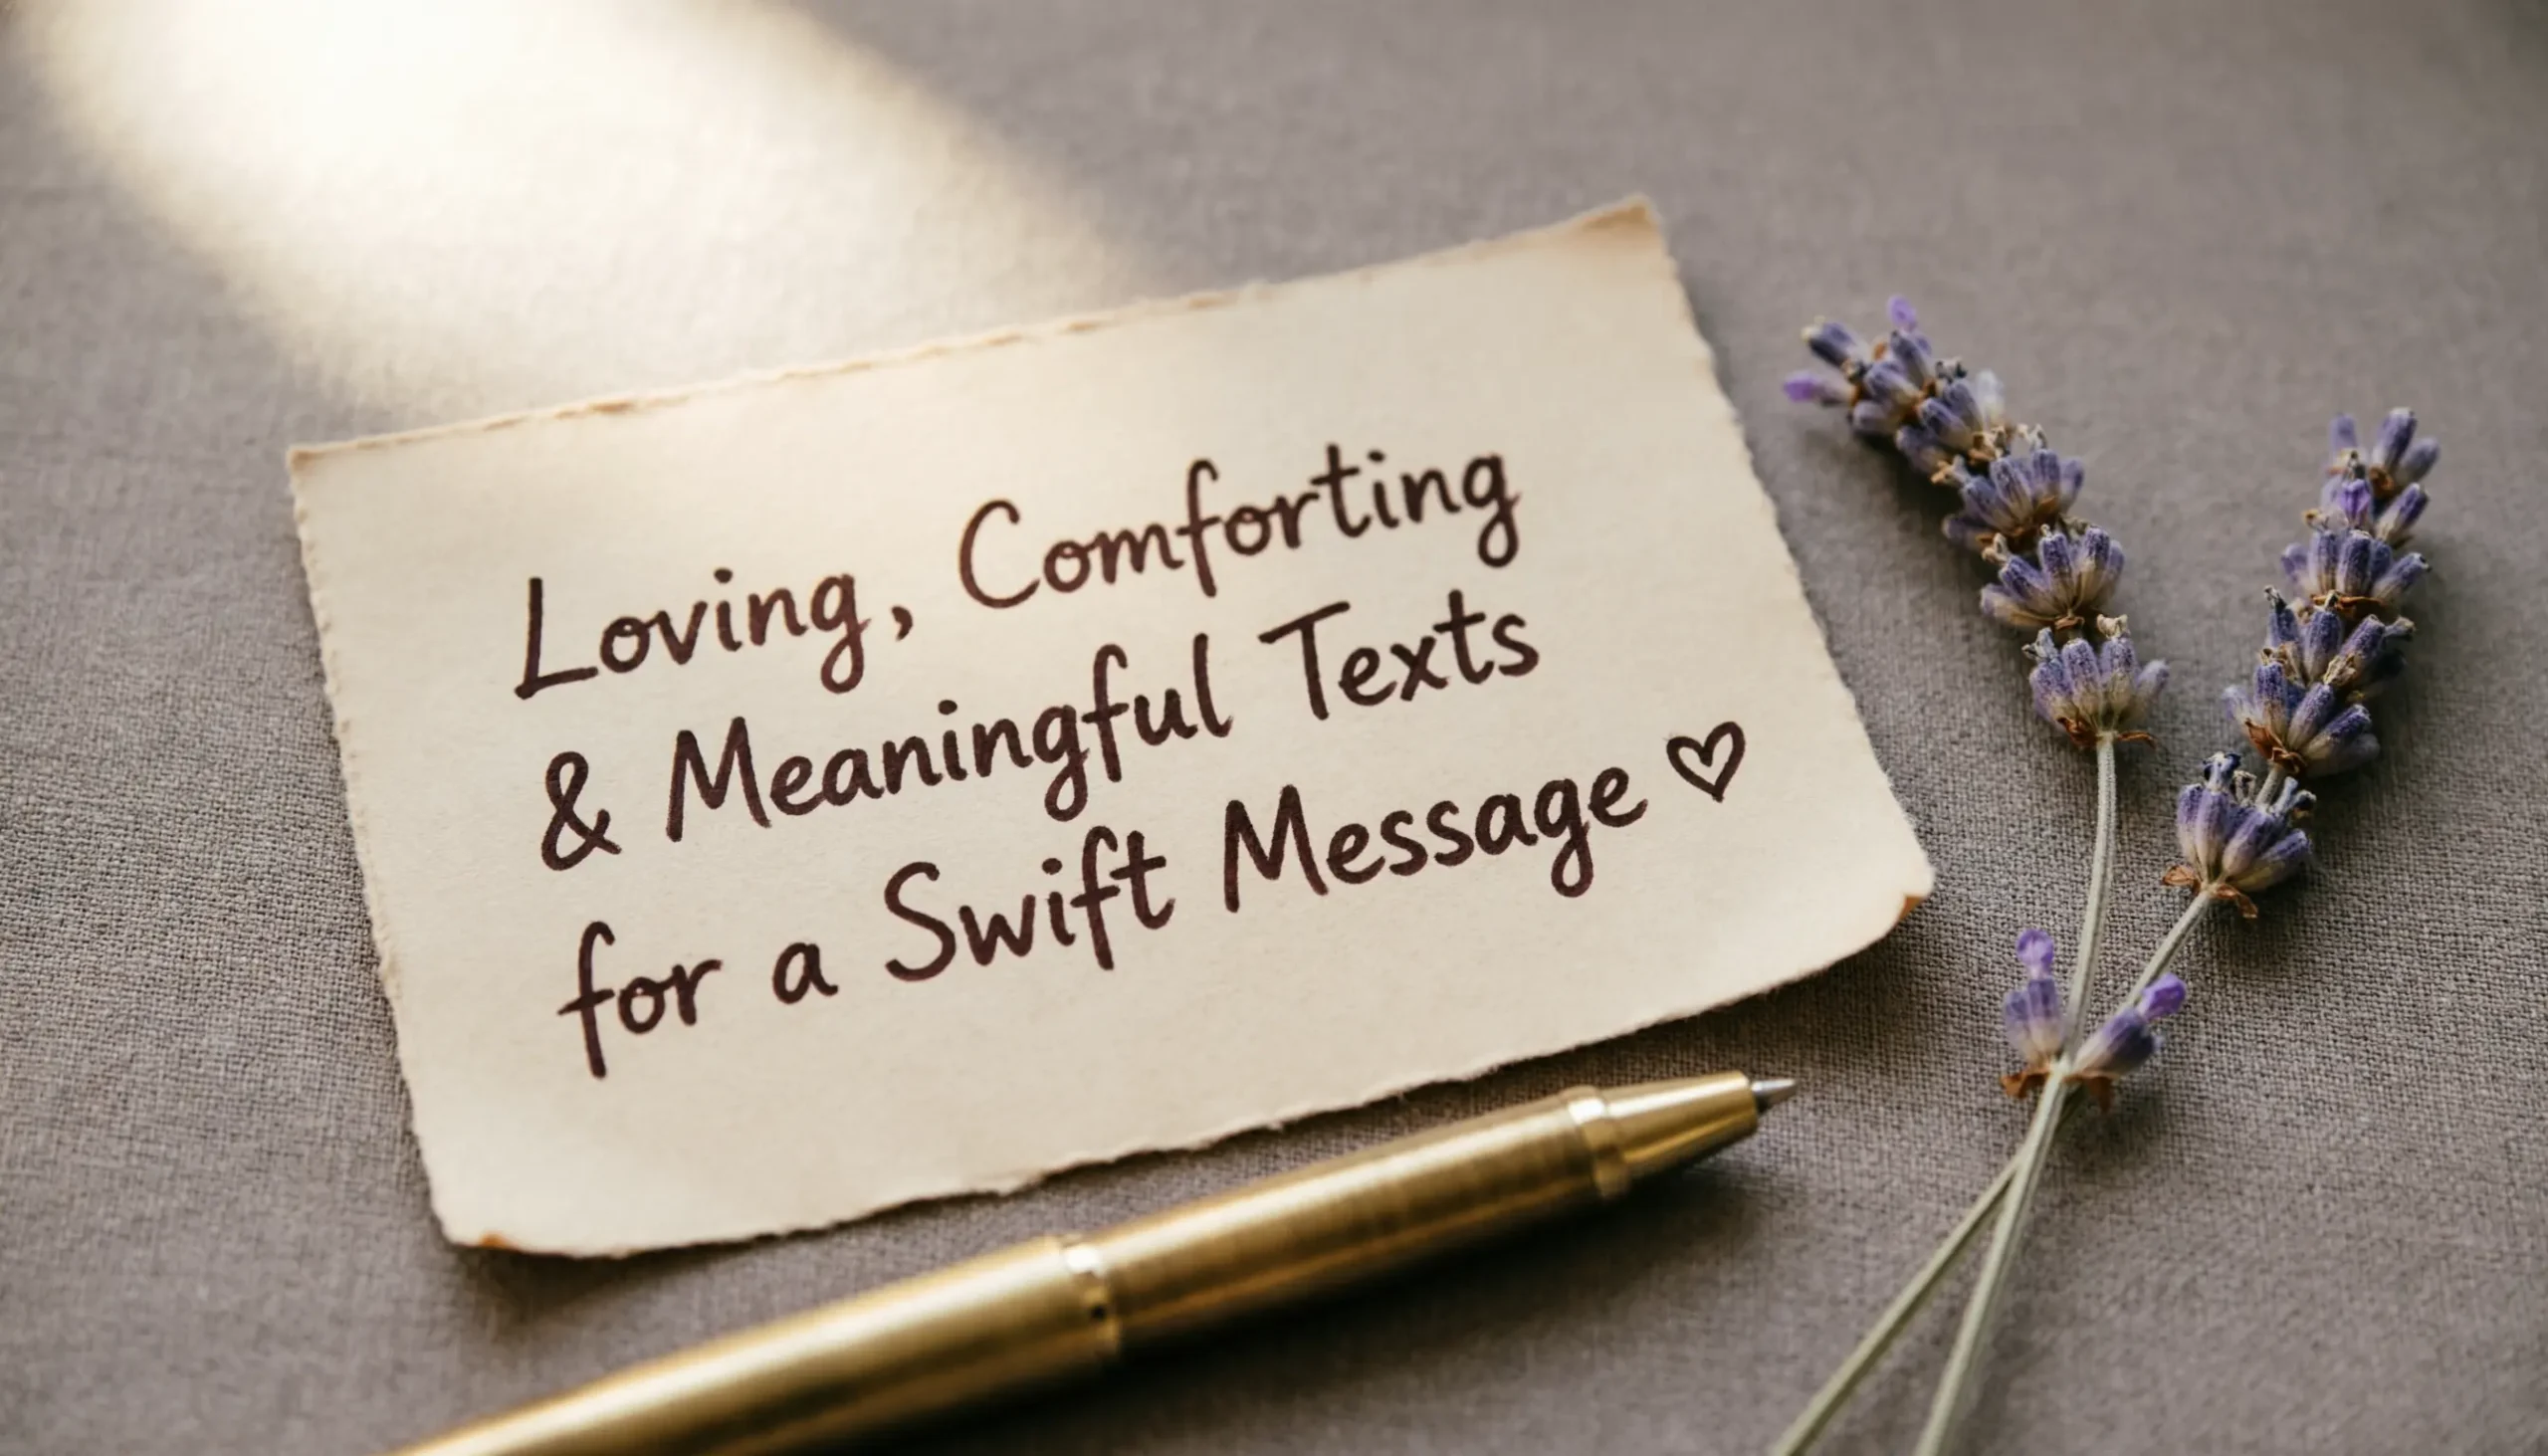 Loving, Comforting
& Meaningful Texts
for a Swift Message ♡